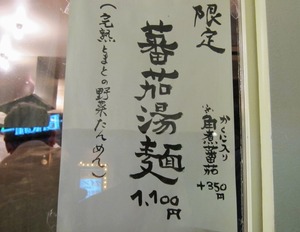 限定
かくに入り
角煮蕃茄
+350円
蕃茄湯麺
1,100円
(完熟とまとの野菜たんめん)